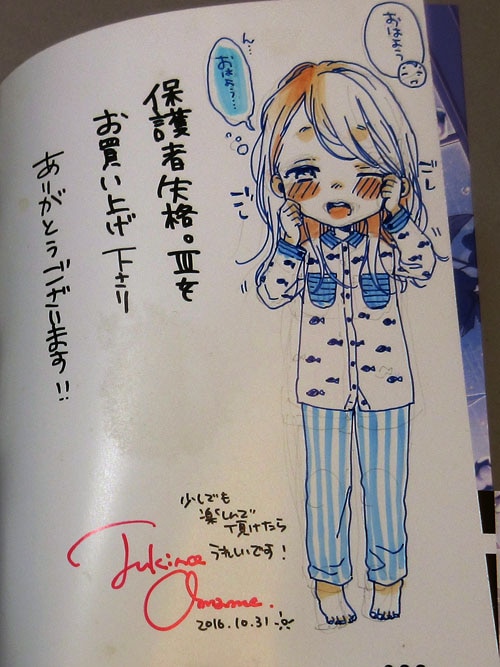 おはよう
ん…
おはよう…
ゴシ
ゴシ
保護者失格。Ⅲを
お買い上げ下さり
ありがとうございます!!
少しでも
楽しんで
頂けたら
うれしいです!
Tukina
Omame.
2016.10.31